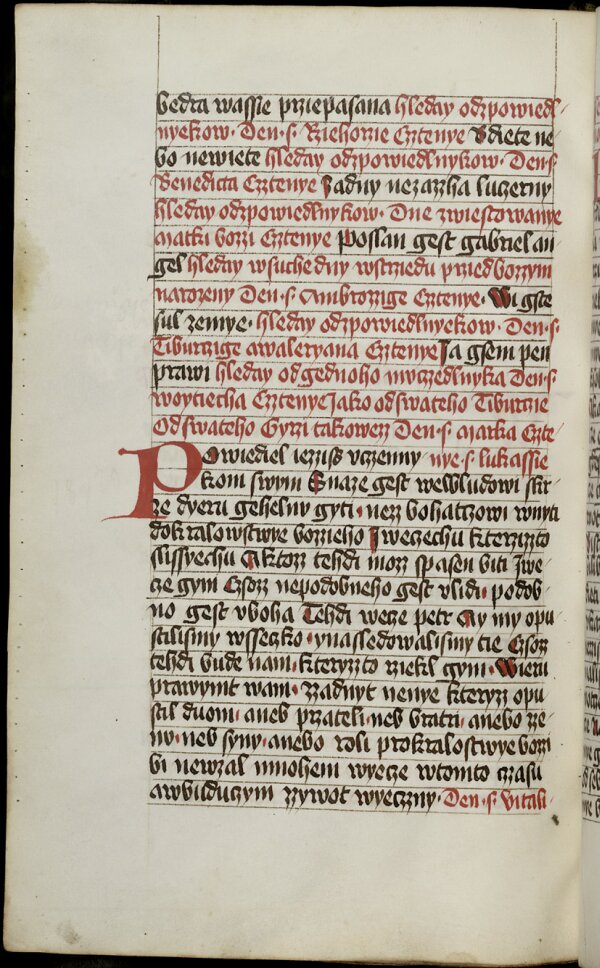 bedra wassie prziepasana hleday odzpowiedl-
nyekow· Den·s· Rziehorzie Cztenye Bdiete ne-
bo newiete hleday odzpowiedlnykow· Den·s·
Benedicta Cztenye Zadny nezazzha luczerny
hleday odzpowiedlnykow· Dne zwiestowanye
matki bozzi Cztenye Poslan gest gabriel an-
gel hleday wsuchedny wstrziedu przied bozzym
narozeny Den·s· Ambrozzige Cztenye· Wi gste
sul zemye· hleday odzpowiedlnyekow· Den·s·
Tiburczige awaleryana Cztenye Ja gsem pen
prawi hleday odgednoho muczedlnyka Den·s·
woytiecha Cztenye Jako odswateho Tiburcie
Odswateho Gyrzi takowezz Den·s· Marka Czte-
Powiediel iezziss vczenny- nye·s· lukassie
kom swym Snaze gest welbludowi skr-
ze dyeru gehelny gyti· nezz bohatzowi wnyti
dokralowstwye bozzieho J weczechu kterzizzto
slissyechu Aktozz tehdi mozz spasen biti Jwe-
cze gym Czozz nepodobneho gest vlidi· podob-
no gest vboha Tehdi wecze petr Ay my opu-
stilismy wsseczko· ynasledowalismy tie Czozz
tehdi bude nam· kteryzzto rziekl gym· Wieru
prawymt wam· zzadnyt nenye kteryzz opu-
stil duom· aneb przateli· neb bratri· anebo ze-
nu· neb syny· anebo roli prokralostwye bozzi
bi newzal mnohem wyecze wtomto czasu
awbuduczym zzywot wyeczny· Den·s· vitali-